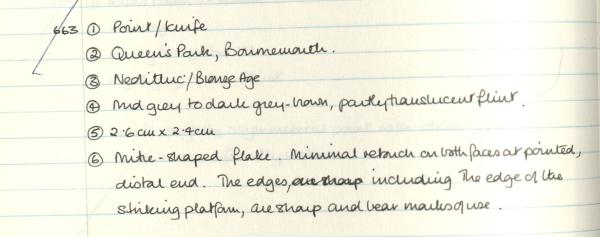 663 ① Point/Knife
② Queen's Park, Bournemouth.
③ Neolithic/Bronze Age
④ Mid grey to dark grey-brown, partly translucent flint.
⑤ 2.6cm x 2.4cm
⑥ Mitre-shaped flake. Minimal retouch on both faces at pointed,
distal end. The edges, are sharp including the edge of the
striking platform, are sharp and bear marks of use.